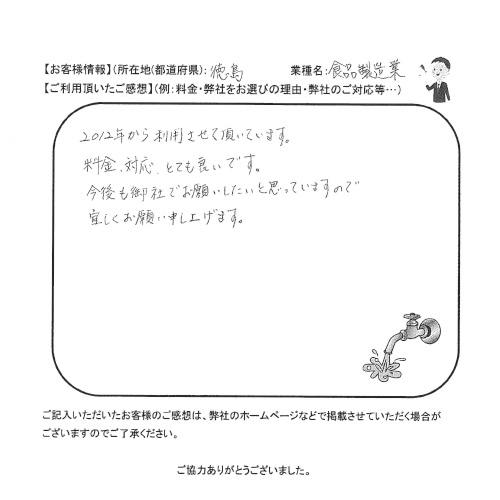 【お客様情報】(所在地(都道府県): 徳島 業種名: 食品製造業
【ご利用頂いたご感想】(例: 料金・弊社をお選びの理由・弊社のご対応等…)
2012年から利用させて頂いています。
料金、対応、とても良いです。
今後も御社でお願いしたいと思っていますので
宜しくお願い申し上げます。
ご記入いただいたお客様のご感想は、弊社のホームページなどで掲載させていただく場合が
ございますのでご了承ください。
ご協力ありがとうございました。